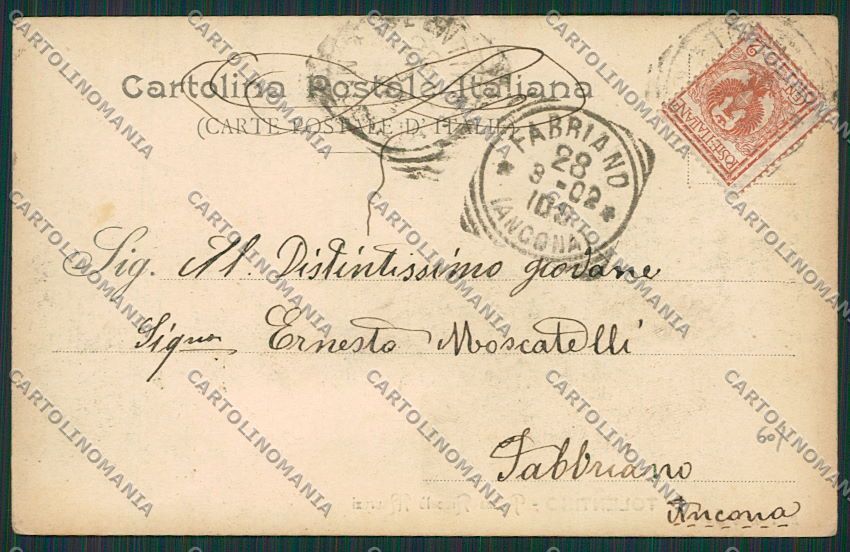 Cartolina Postale Italiana
(CARTE POSTALE D'ITALIE)
FABRIANO
28
3-02
10 S
(ANCONA)
POSTE ITALIANE
Sig. Al Distintissimo giovane
Signor Ernesto Moscatelli
Fabbriano
Ancona
60X
TOLENTINO
CARTOLINOMANIA